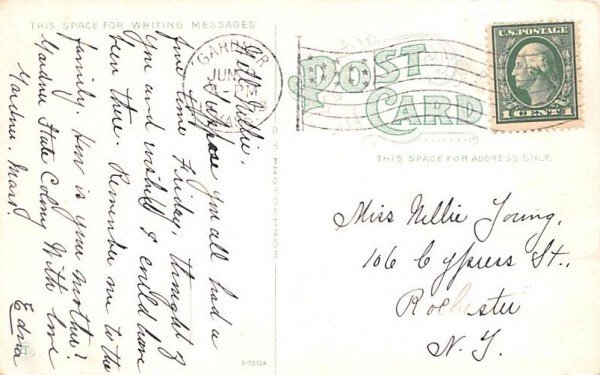 THIS SPACE FOR WRITING MESSAGES
Dear Nellie,
Suppose you all had a
fine time Friday, thought of
you and wished I could have
been there. Remember me to the
family. How is your mother?
Gardner State Colony With love
Gardner, Mass. Edna
GARDNER
JUN
MASS.
POST
CARD
U.S. POSTAGE
1 CENT 1
THIS SPACE FOR ADDRESS ONLY.
Miss Nellie Young,
106 Cypress St.,
Rochester
N.Y.